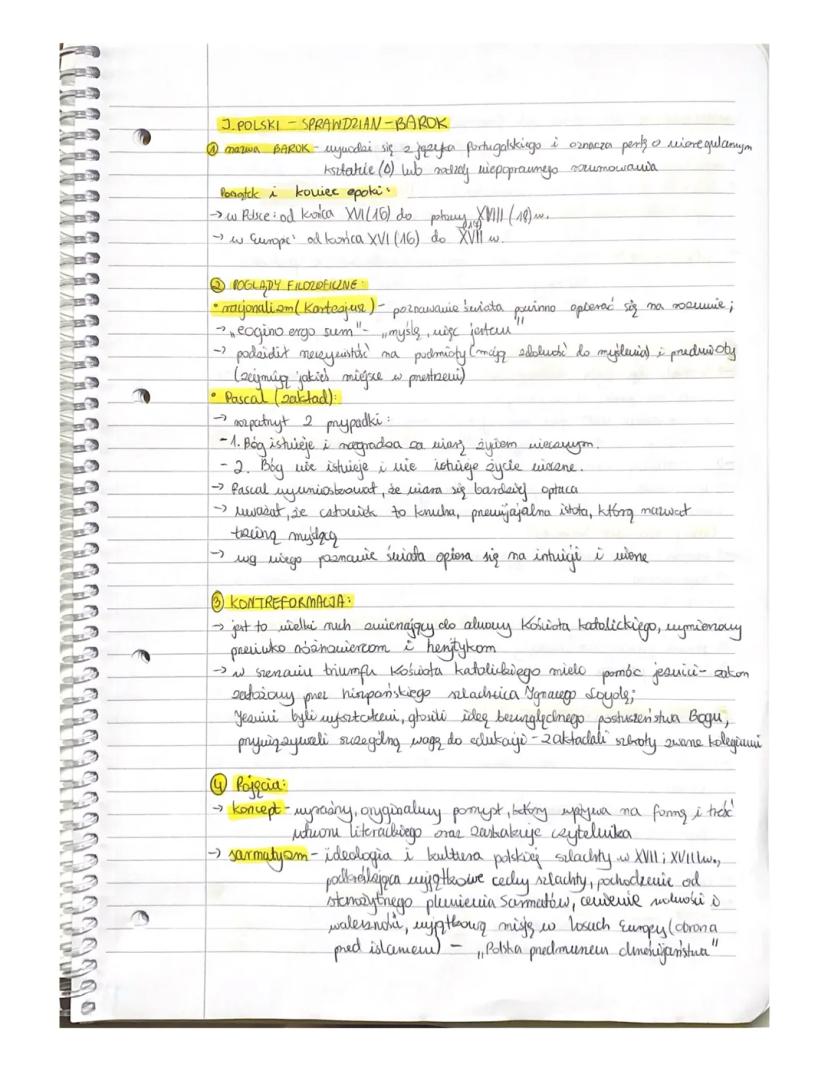 J. POLSKI - SPRAWDZIAN - BAROK
① nazwa BAROK - wywodzi się z języka portugalskiego i oznacza perłę o nieregularnym
kształcie (0) lub rodzaj niepoprawnego rozumowania
Początek i koniec epoki:
→ w Polsce: od końca XVI (16) do połowy XVIII (18) w.
→ w Europie: od końca XVI (16) do XVII (17) w.
② POGLĄDY FILOZOFICZNE:
• racjonalizm (Kartezjusz) - poznawanie świata powinno opierać się na rozumie;
→ „cogino ergo sum" - „myślę, więc jestem"
→ podzielił rzeczywistość na podmioty (mają zdolność do myślenia) i przedmioty
(zajmują jakieś miejsce w przestrzeni)
• Pascal (zakład):
→ rozpatrzył 2 przypadki:
- 1. Bóg istnieje i nagradza za wiarę życiem wiecznym.
- 2. Bóg nie istnieje i nie istnieje życie wieczne.
→ Pascal wywnioskował, że wiara się bardziej opłaca
→ uważał, że człowiek to krucha, przemijająca istota, którą nazwał
trzciną myślącą
→ wg niego poznanie świata opiera się na intuicji i wierze
③ KONTREFORMACJA:
→ jest to wielki ruch zmierzający do odnowy Kościoła katolickiego, wymierzony
przeciwko różnowiercom i heretykom
→ w szerzeniu triumfu Kościoła katolickiego mieli pomóc jezuici - zakon
założony przez hiszpańskiego szlachcica Ignacego Loyolę;
Jezuici byli wykształceni, głosili ideę bezwzględnego posłuszeństwa Bogu,
przywiązywali szczególną wagę do edukacji - zakładali szkoły zwane kolegiami
④ Pojęcia:
→ koncept - wyraźny, oryginalny pomysł, który wpływa na formę i treść
utworu literackiego oraz zaskakuje czytelnika
→ sarmatyzm - ideologia i kultura polskiej szlachty w XVII i XVIII w.,
podkreślająca wyjątkowe cechy szlachty, pochodzenie od
starożytnego plemienia Sarmatów, cenienie wolności i
waleczności, wyjątkową misję w losach Europy (obrona
przed islamem) - „Polska przedmurzem chrześcijaństwa"